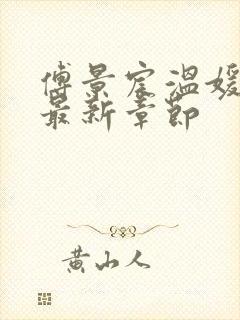 傅景宸温媛
最新章节
黄山人